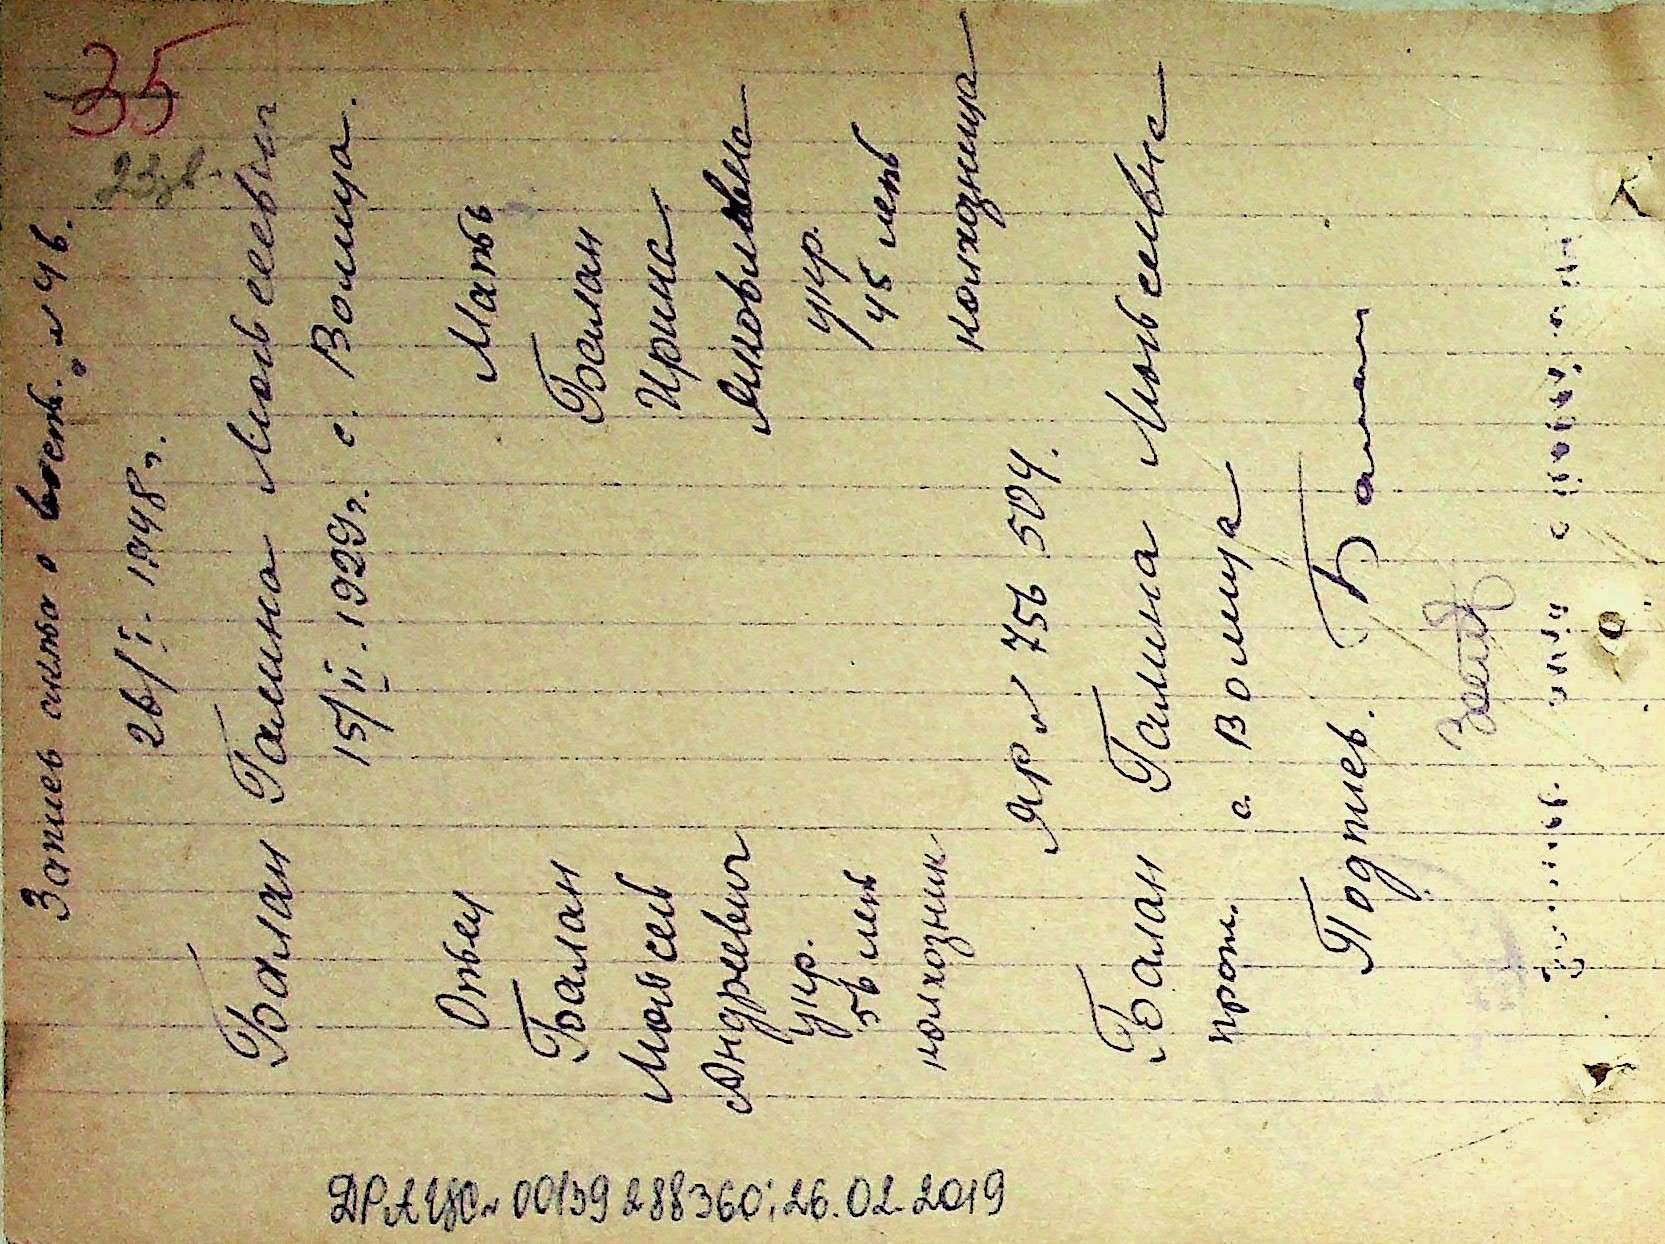 35
Запись акта о восст. № 46.
23зв.
26/I. 1948 г.
Балан Галина Моисеевич
15/II. 1929 г. с. Волица.
Отец
Балан
Моисей
Андреевич
укр.
56 лет
колхозник
Мать
Балан
Ирина
Яковлевна
укр.
45 лет
колхозница
ЯР № 756 504.
Балан Галина Моисеевна
прож. с. Волица
Подпись. Балан
ДРАЦС 00139288360; 26.02.2019